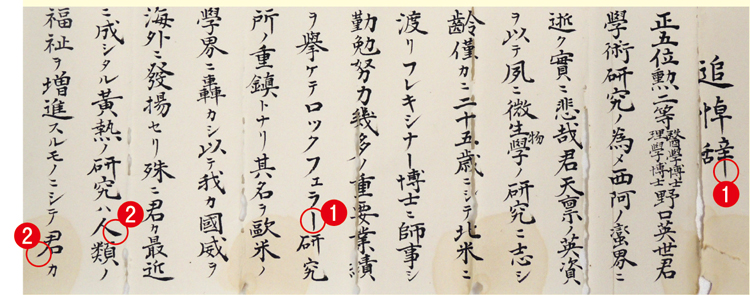 追悼辞
正五位勲二等醫學博士理學博士野口英世君
學術研究ノ為メ西阿ノ蛮界ニ
逝ク實ニ悲哉君天禀ノ英資
ヲ以テ夙ニ微生物學ノ研究ニ志シ
齢僅カニ二十五歳ニシテ北米ニ
渡リフレキシナー博士ニ師事シ
勤勉努力幾多ノ重要業績
ヲ擧ケテロックフェラー研究
所ノ重鎮トナリ其名ヲ歐米ノ
學界ニ轟カシ以テ我カ國威ヲ
海外ニ發揚セリ殊ニ君ク最近
ニ成シタル黄熱ノ研究ハ人類ノ
福祉ヲ増進スルモノニシテ君カ
1
1
2
2